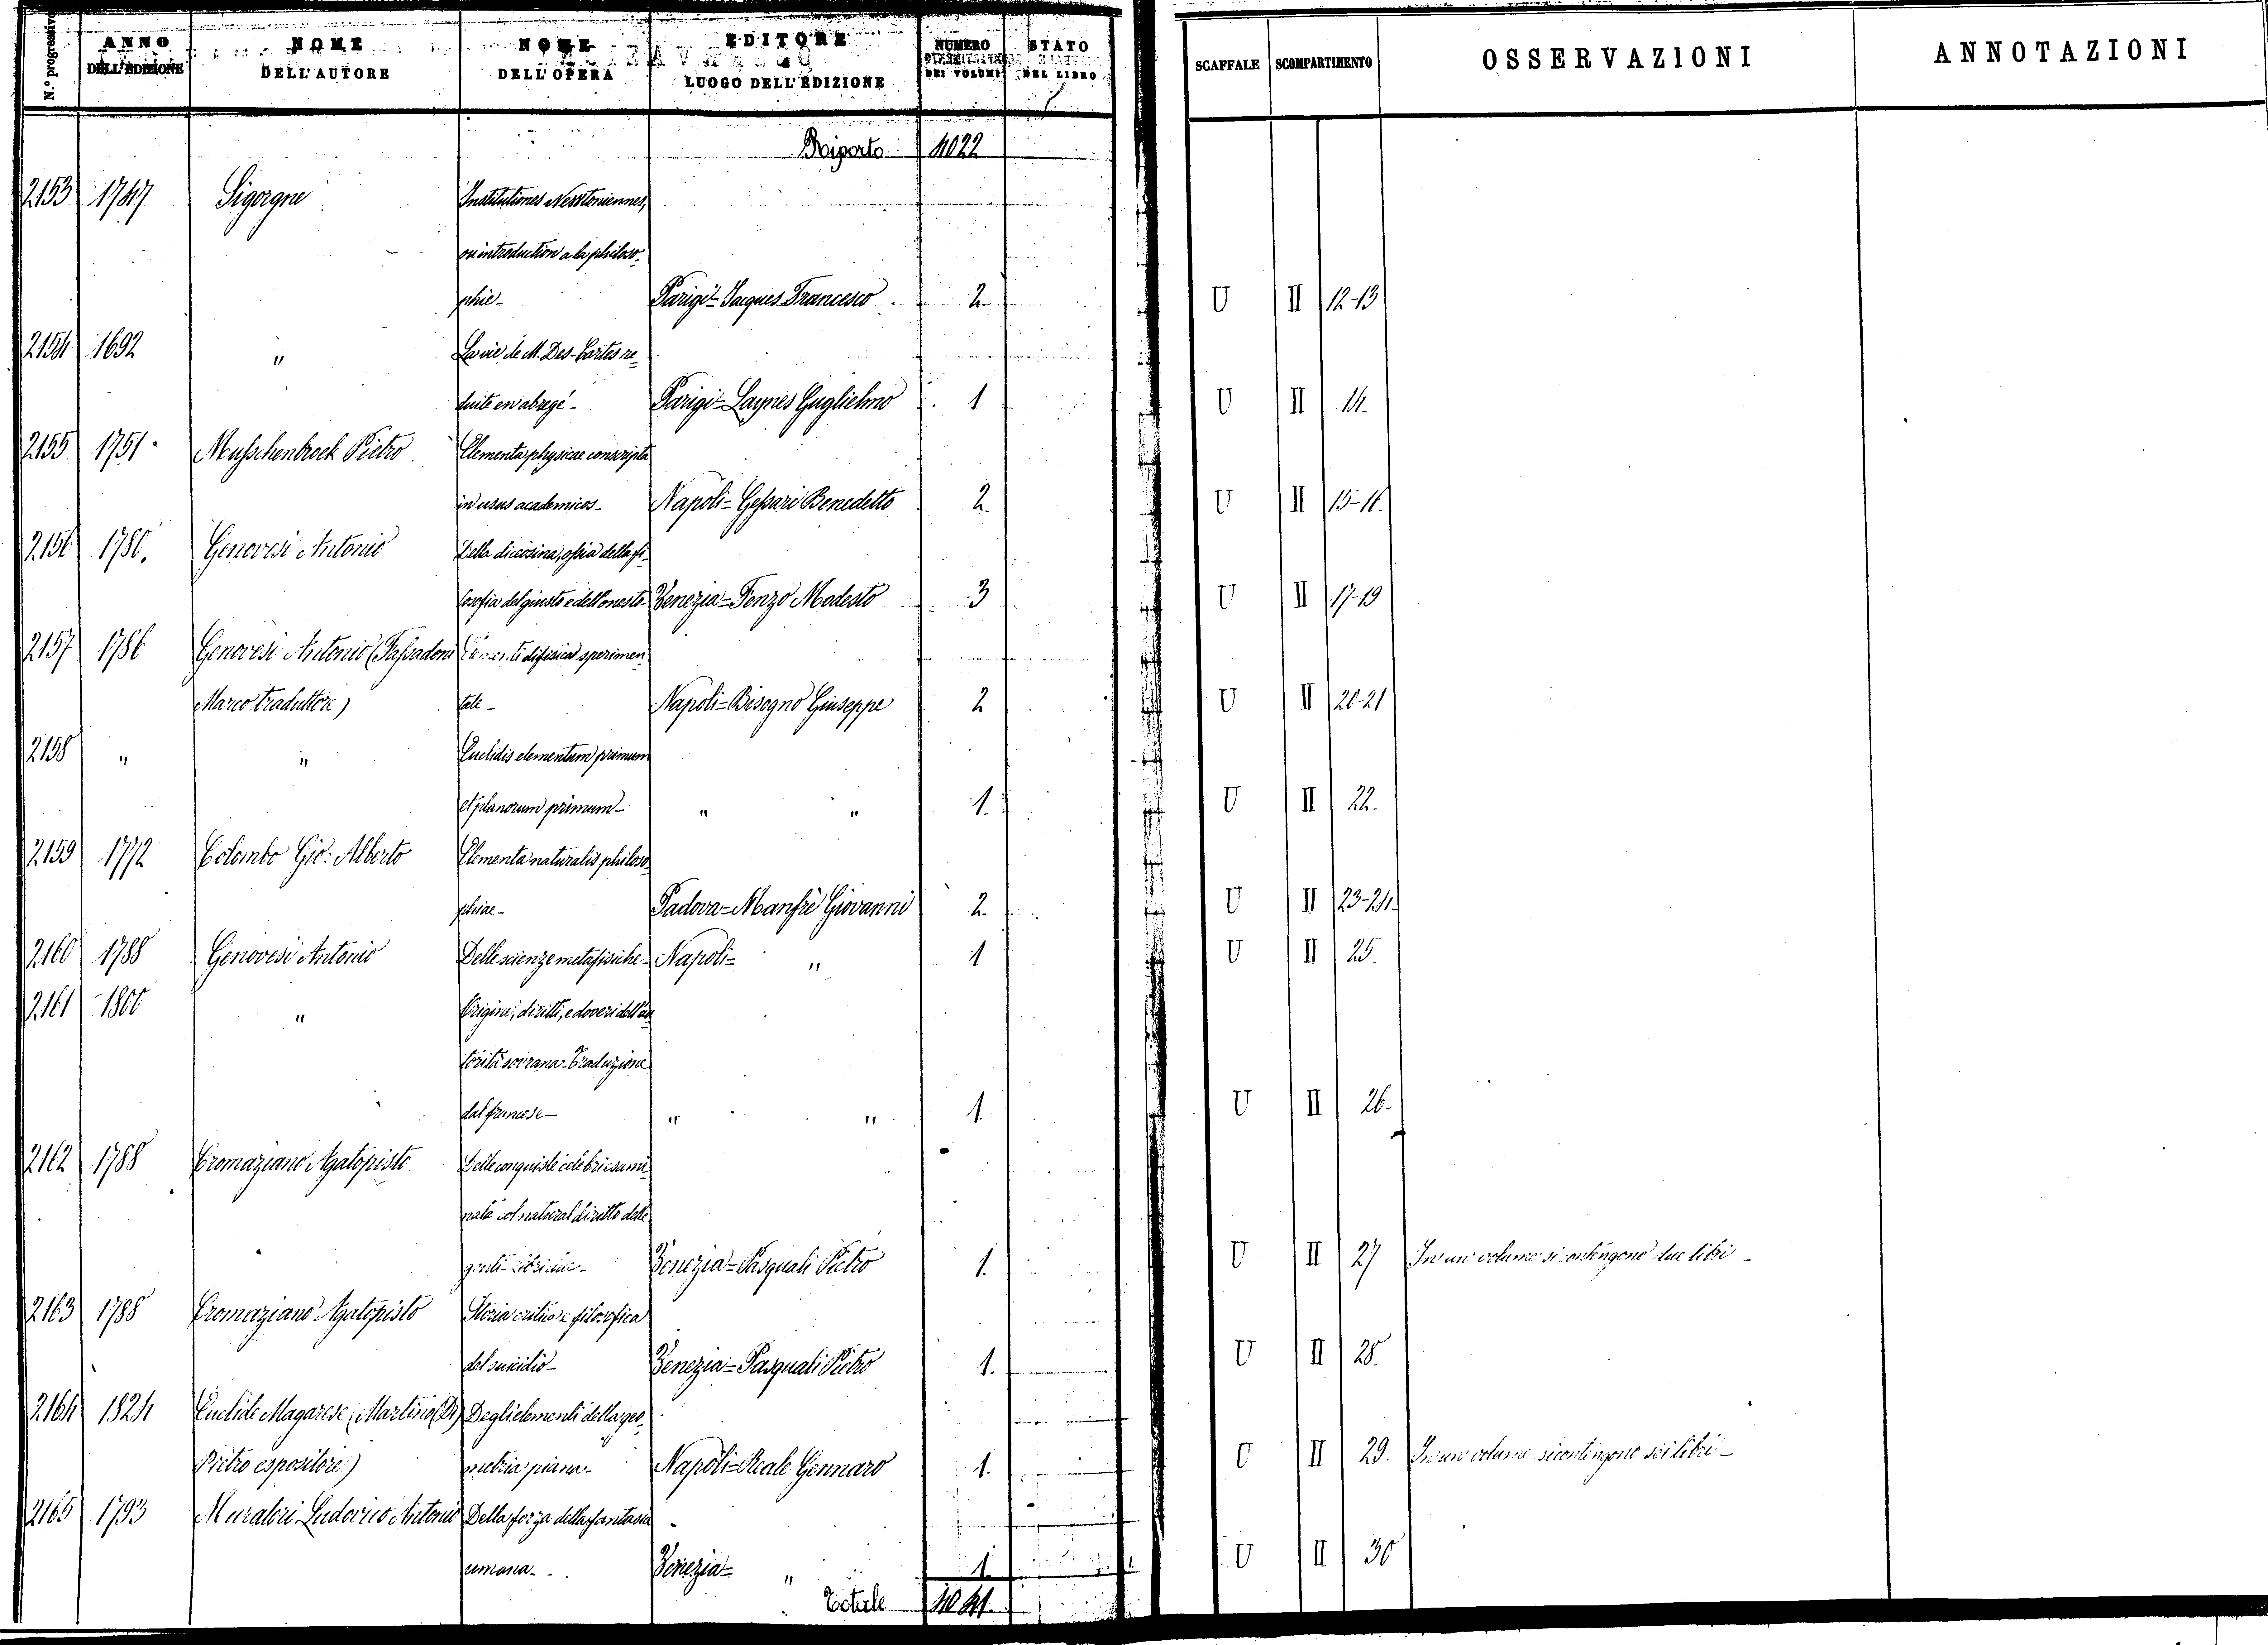 N.º progressivo
ANNO DELL'EDIZIONE
NOME DELL'AUTORE
NOME DELL'OPERA
EDITORE
LUOGO DELL'EDIZIONE
NUMERO DEI VOLUMI
STATO DEL LIBRO
SCAFFALE
SCOMPARTIMENTO
OSSERVAZIONI
ANNOTAZIONI
Riporto 4022
2153 1747 Sigorgne Institutiones Newtoniennes,
ou introduction a la philoso-
phie- Parigi- Jacques Francesco 2 U II 12-13
2154 1692 " La vie de M. Des-Cartes re-
duite en abregé- Parigi- Laynes Guglielmo 1 U II 14.
2155 1751 Musschenbroek Pietro Elementa physicae conscripta
in usus academicos- Napoli- Gessari Benedetto 2. U II 15-16.
2156 1780. Genovesi Antonio Della diceosina, ossia della fi-
losofia del giusto e dell'onesto- Venezia- Fenzo Modesto 3 U II 17-19
2157 1786 Genovesi Antonio (Fassadoni Elementi di fisica sperimen-
Marco traduttore) tale- Napoli- Bisogno Giuseppe 2 U II 20-21
2158 " " Euclidis elementum primum
et planorum primum- " " 1. U II 22.
2159 1772 Colombo Gio: Alberto Elementa naturalis philoso-
phiae- Padova- Manfrè Giovanni 2. U II 23-24.
2160 1788 Genovesi Antonio Delle scienze metafisiche- Napoli- " 1 U II 25.
2161 1800 " Origine, diritti, e doveri dell'au-
torità sovrana- Traduzione
dal francese- " " 1. U II 26-
2162 1788 Cromaziano Agatopisto Delle conquiste celebri esami-
nate col natural diritto delle
genti- Venezia- Pasquali Pietro 1. U II 27 In un volume si contengono due libri-
2163 1788 Cromaziano Agatopisto Storia critica e filosofica
del suicidio- Venezia- Pasquali Pietro 1. U II 28.
2164 1824 Euclide Magarese (Martino (Di) Degli elementi della geo-
Pietro espositore) metria piana- Napoli- Reale Gennaro 1. U II 29. In un volume si contengono sei libri-
2165 1793 Muratori Ludovico Antonio Della forza della fantasia
umana- Venezia- " 1 U II 30
Totale 4041.